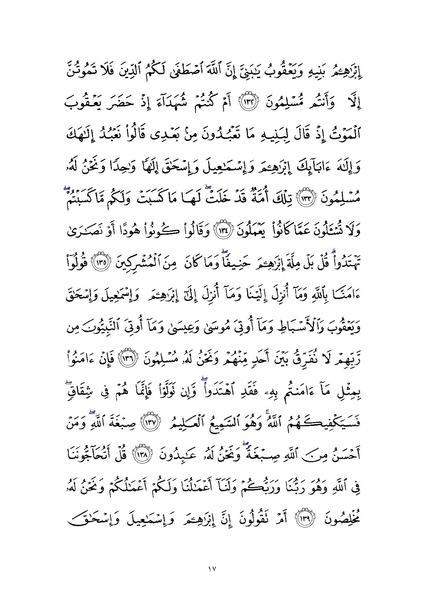 إِبۡرَٰهِـۧمُ بَنِيهِ وَيَعۡقُوبُ يَٰبَنِيَّ إِنَّ ٱللَّهَ ٱصۡطَفَىٰ لَكُمُ ٱلدِّينَ فَلَا تَمُوتُنَّ
إِلَّا وَأَنتُم مُّسۡلِمُونَ ١٣٢ أَمۡ كُنتُمۡ شُهَدَآءَ إِذۡ حَضَرَ يَعۡقُوبَ
ٱلۡمَوۡتُ إِذۡ قَالَ لِبَنِيهِ مَا تَعۡبُدُونَ مِنۢ بَعۡدِي قَالُواْ نَعۡبُدُ إِلَٰهَكَ
وَإِلَٰهَ ءَابَآئِكَ إِبۡرَٰهِـۧمَ وَإِسۡمَٰعِيلَ وَإِسۡحَٰقَ إِلَٰهٗا وَٰحِدٗا وَنَحۡنُ لَهُۥ
مُسۡلِمُونَ ١٣٣ تِلۡكَ أُمَّةٞ قَدۡ خَلَتۡۖ لَهَا مَا كَسَبَتۡ وَلَكُم مَّا كَسَبۡتُمۡۖ
وَلَا تُسۡـَٔلُونَ عَمَّا كَانُواْ يَعۡمَلُونَ ١٣٤ وَقَالُواْ كُونُواْ هُودًا أَوۡ نَصَٰرَىٰ
تَهۡتَدُواْۗ قُلۡ بَلۡ مِلَّةَ إِبۡرَٰهِـۧمَ حَنِيفٗاۖ وَمَا كَانَ مِنَ ٱلۡمُشۡرِكِينَ ١٣٥ قُولُوٓاْ
ءَامَنَّا بِٱللَّهِ وَمَآ أُنزِلَ إِلَيۡنَا وَمَآ أُنزِلَ إِلَىٰٓ إِبۡرَٰهِـۧمَ وَإِسۡمَٰعِيلَ وَإِسۡحَٰقَ
وَيَعۡقُوبَ وَٱلۡأَسۡبَاطِ وَمَآ أُوتِيَ مُوسَىٰ وَعِيسَىٰ وَمَآ أُوتِيَ ٱلنَّبِيُّونَ مِن
رَّبِّهِمۡ لَا نُفَرِّقُ بَيۡنَ أَحَدٖ مِّنۡهُمۡ وَنَحۡنُ لَهُۥ مُسۡلِمُونَ ١٣٦ فَإِنۡ ءَامَنُواْ
بِمِثۡلِ مَآ ءَامَنتُم بِهِۦ فَقَدِ ٱهۡتَدَواْۖ وَّإِن تَوَلَّوۡاْ فَإِنَّمَا هُمۡ فِي شِقَاقٖۖ
فَسَيَكۡفِيكَهُمُ ٱللَّهُۚ وَهُوَ ٱلسَّمِيعُ ٱلۡعَلِيمُ ١٣٧ صِبۡغَةَ ٱللَّهِ وَمَنۡ
أَحۡسَنُ مِنَ ٱللَّهِ صِبۡغَةٗۖ وَنَحۡنُ لَهُۥ عَٰبِدُونَ ١٣٨ قُلۡ أَتُحَآجُّونَنَا
فِي ٱللَّهِ وَهُوَ رَبُّنَا وَرَبُّكُمۡ وَلَنَآ أَعۡمَٰلُنَا وَلَكُمۡ أَعۡمَٰلُكُمۡ وَنَحۡنُ لَهُۥ
مُخۡلِصُونَ ١٣٩ أَمۡ تَقُولُونَ إِنَّ إِبۡرَٰهِـۧمَ وَإِسۡمَٰعِيلَ وَإِسۡحَٰقَ
١٧